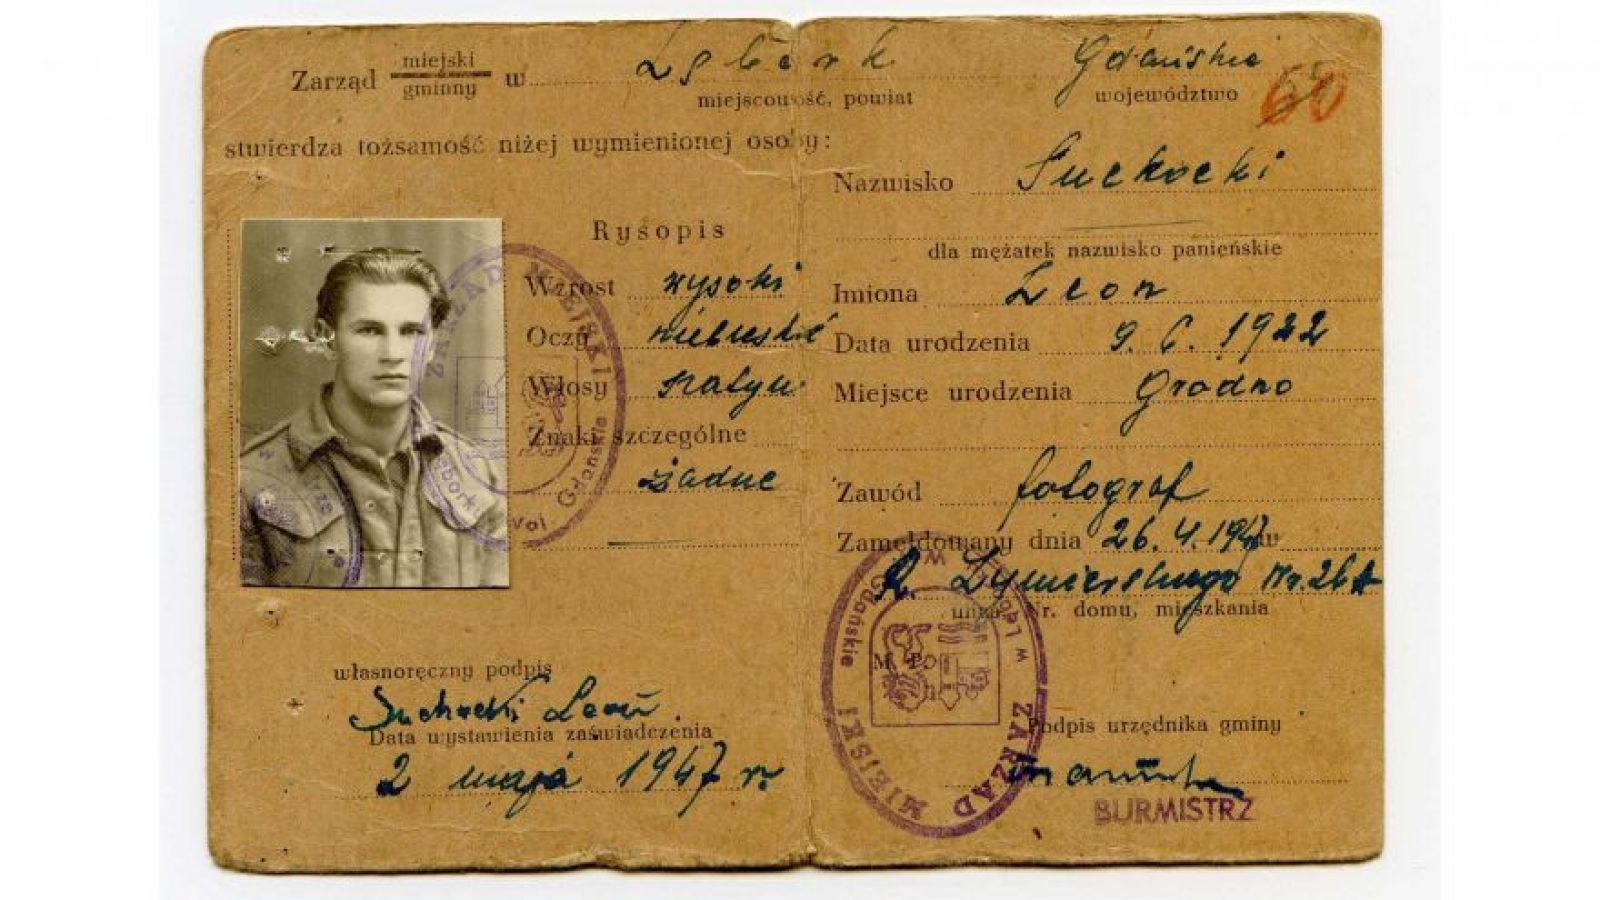 Zarząd miejski gminny w Lębork Gdańskie
miejscowość, powiat województwo
60
stwierdza tożsamość niżej wymienionej osoby:
Rysopis
Wzrost wysoki
Oczy niebieskie
Włosy szatyn
Znaki szczególne
żadne
własnoręczny podpis
Suchocki Leon.
Data wystawienia zaświadczenia
2 maja 1947 r.
Nazwisko Suchocki
dla mężatek nazwisko panieńskie
Imiona Leon
Data urodzenia 9. 6. 1922
Miejsce urodzenia Grodno
Zawód fotograf
Zameldowany dnia 26. 4. 1947 w
R. Żymierskiego Nr. 26
ulica, Nr. domu, mieszkania
M. P.
Podpis urzędnika gminy
BURMISTRZ
ZARZĄD MIEJSKI
w Lęborku Woj Gdańskie
ZARZĄD MIEJSKI
w Lęborku Gdańskie